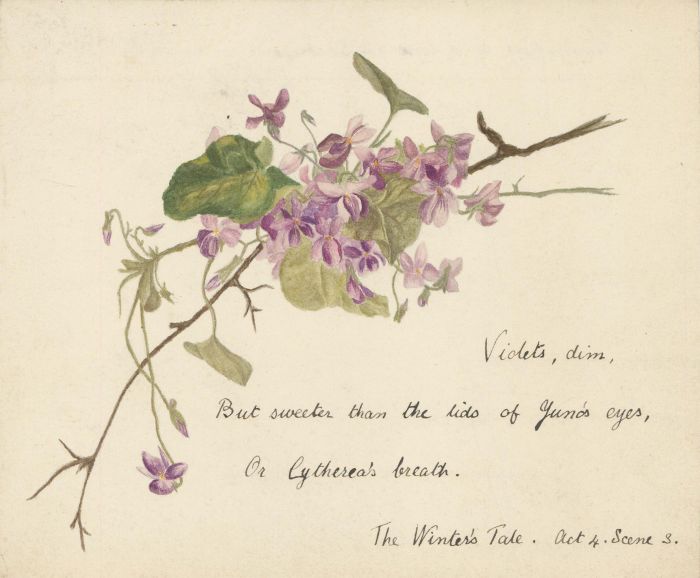 Violets, dim,
But sweeter than the lids of Juno's eyes,
Or Cytherea's breath.
The Winter's Tale. Act 4. Scene 3.